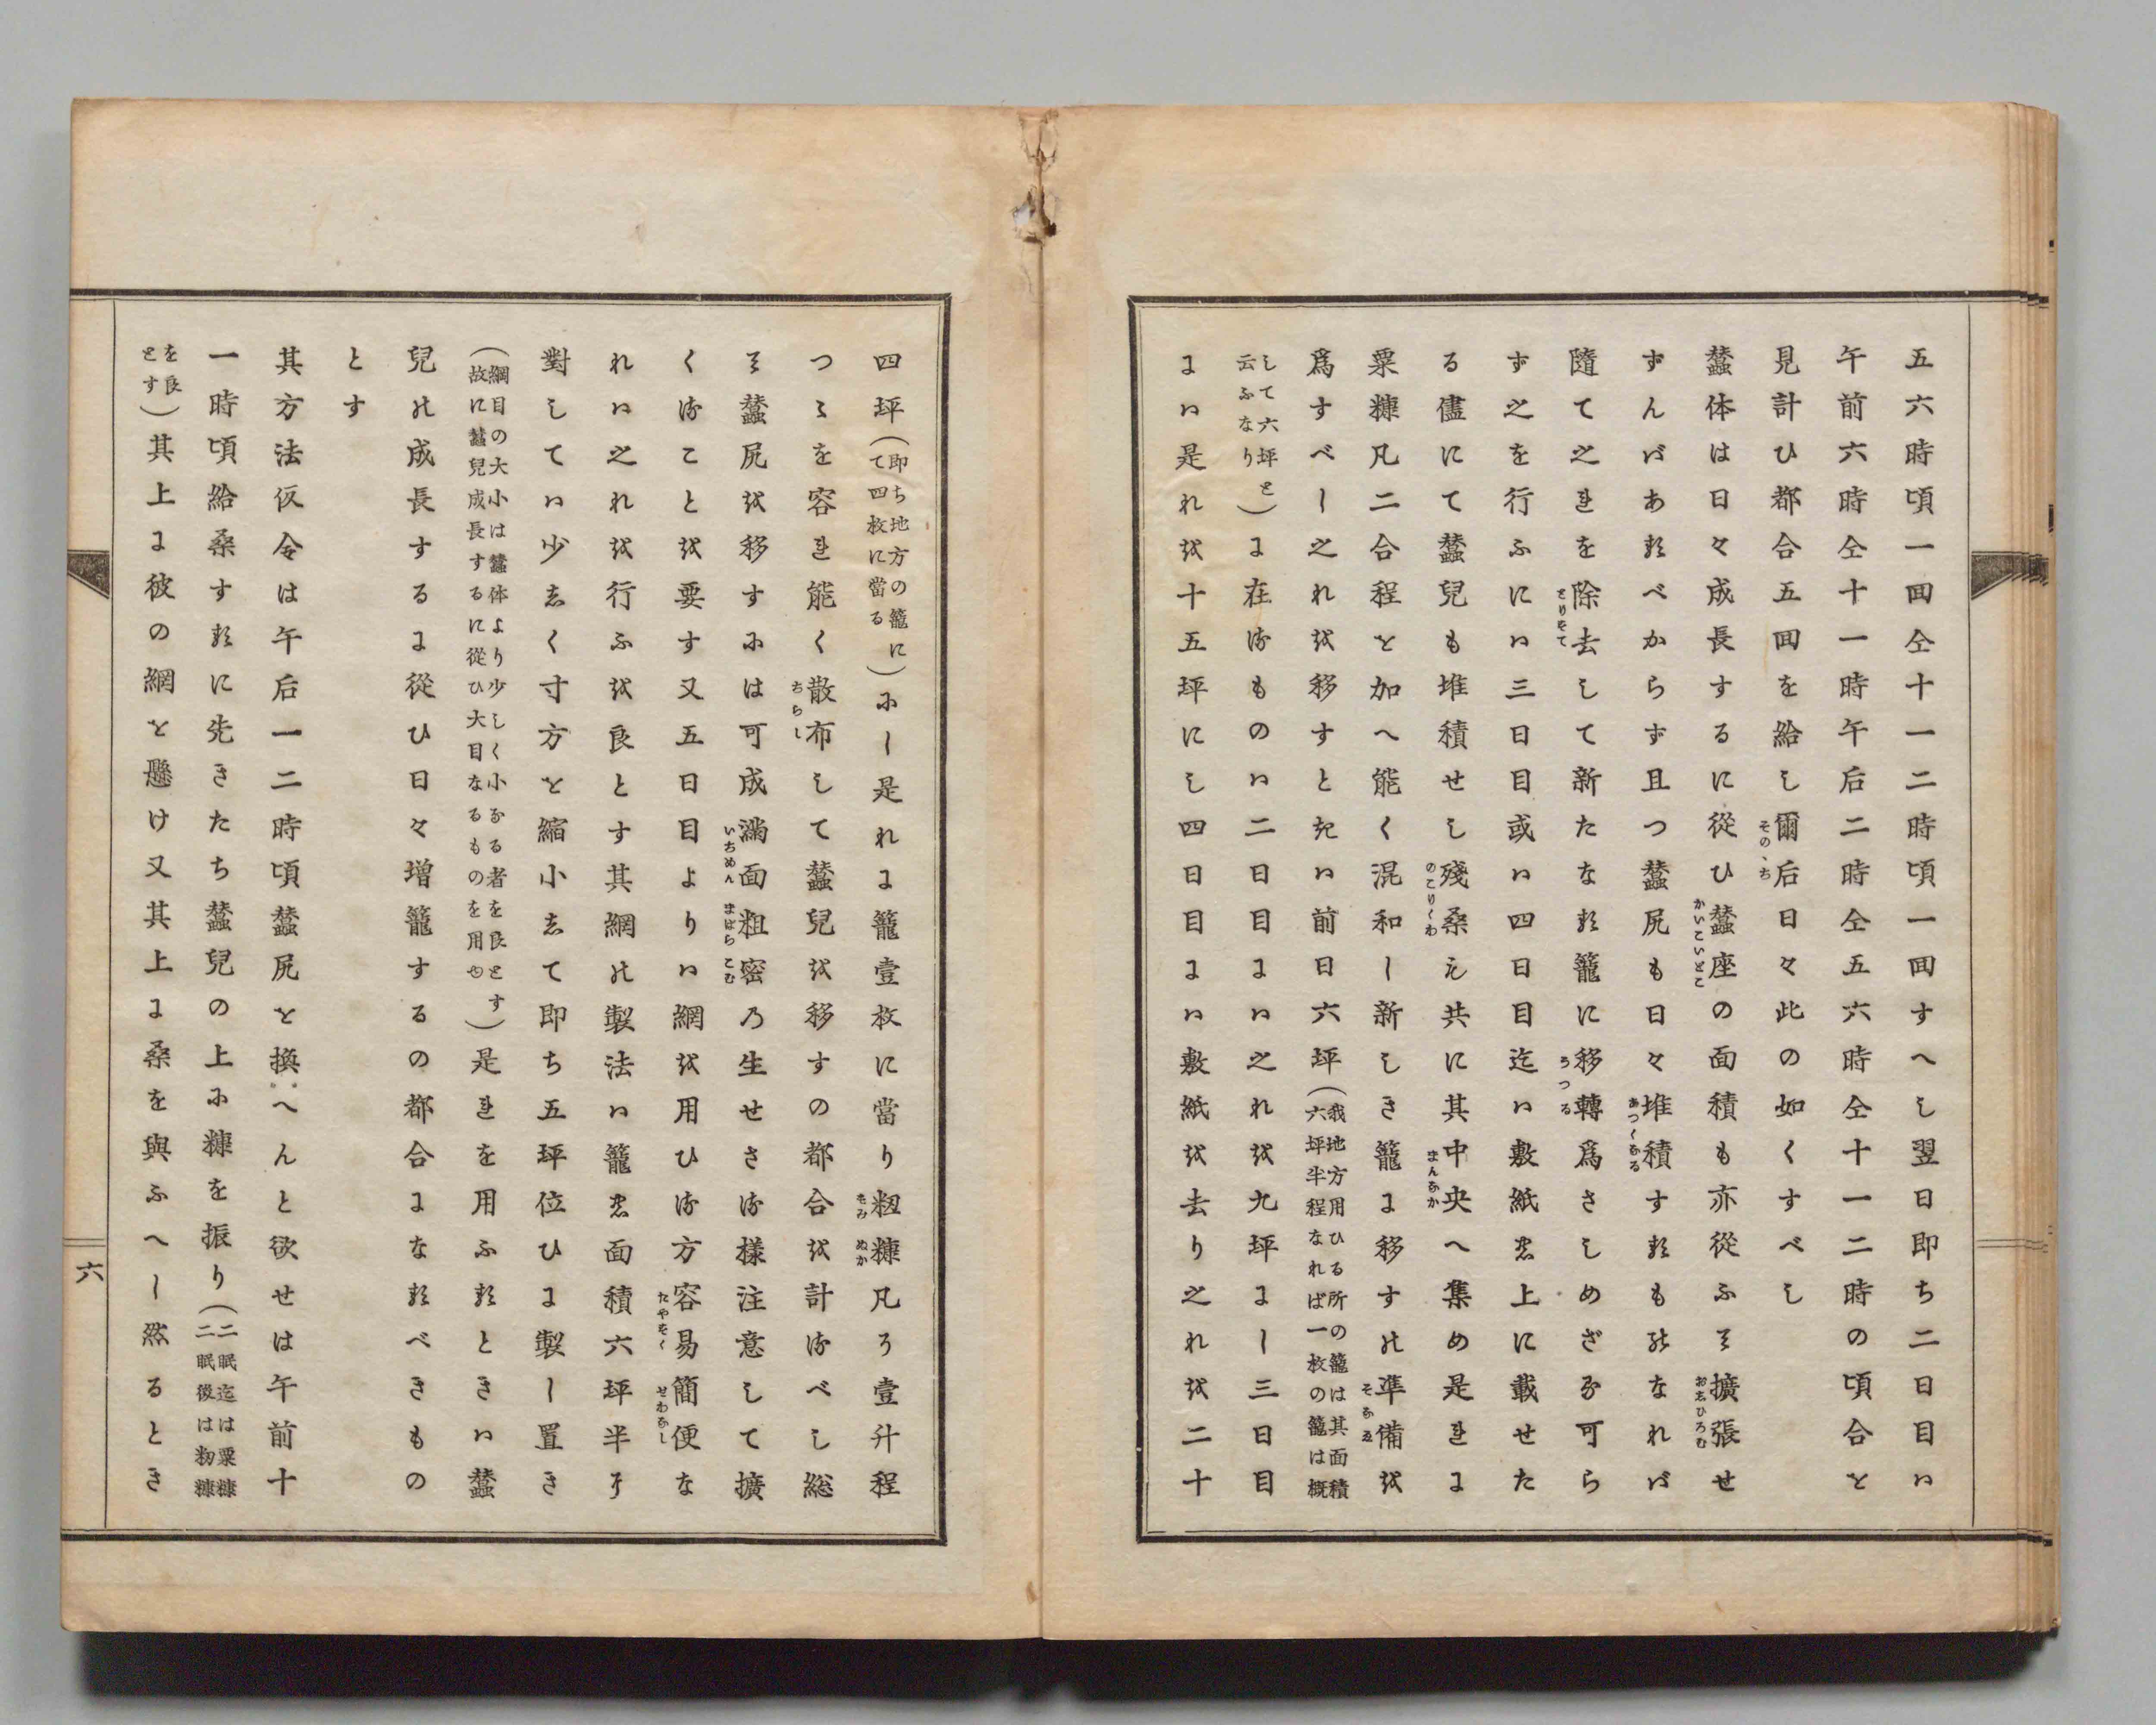 五六時頃一回仝十一二時頃一回すへし翌日即ち二日目ハ
午前六時仝十一時午后二時仝五六時仝十一二時の頃合を
見計ひ都合五回を給し爾后日々此の如くすべし
蠶体は日々成長するに從ひ蠶座の面積も亦從ふて擴張せ
ずんバあるべからず且つ蠶尻も日々堆積するものなれバ
隨て之れを除去して新たなる籠に移轉爲さしめざる可ら
ず之を行ふにハ三日目或ハ四日目迄ハ敷紙の上に載せた
る儘にて蠶兒も堆積せし殘桑も共に其中央へ集め是れに
粟糠凡二合程を加へ能く混和し新しき籠に移すの準備を
爲すべし之れを移すときハ前日六坪(我地方用ひる所の籠は其面積六坪半程なれば一枚の籠は概
して六坪と云ふなり)に在るものハ二日目にハ之れを九坪にし三日目
にハ是れを十五坪にし四日目にハ敷紙を去り之れを二十
四坪(即ち地方の籠にて四枚に當る)にし是れに籠壹枚に當り籾糠凡そ壹升程
つゝを容れ能く散布して蠶兒を移すの都合を計るべし総
て蠶尻を移すには可成滿面粗密の生せさる樣注意して擴
くることを要す又五日目よりハ網を用ひる方容易簡便な
れハ之れを行ふを良とす其網の製法ハ籠の面積六坪半に
對してハ少しく寸方を縮小して即ち五坪位ひに製し置き
(綱目の大小は蠶体より少しく小なる者を良とす故に蠶兒成長するに從ひ大目なるものを用ゆ)是れを用ふるときハ蠶
兒の成長するに從ひ日々增籠するの都合になるべきもの
とす
其方法仮令は午后一二時頃蠶尻を換へんと欲せは午前十
一時頃給桑するに先きたち蠶兒の上に糠を振り(二眠迄は粟糠二眠後は籾糠
を良とす)其上に彼の網を懸け又其上に桑を與ふへし然るとき
六